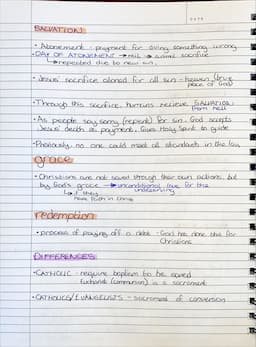 DATE
SALVATION:
• Atonement - payment for doing something wrong
• DAY OF ATONEMENT → animal sacrifice
↳ repeated due to new sin.
• Jesus' sacrifice atoned for all sin - heaven (true place of God)
• Through this sacrifice, humans receive SALVATION from hell
• As people say sorry (repent) for sin, God accepts
Jesus' death as payment, gives Holy Spirit to guide
• Previously, no one could meet all standards in the law
grace
• Christians are not saved through their own actions, but
by God's grace → unconditional love for the undeserving
↳ they have faith in Christ
redemption
• process of paying off a debt - God has done this for
Christians
DIFFERENCES:
• CATHOLIC - require baptism to be saved
Eucharist (communion) is a sacrament
• CATHOLICS/EVANGELISTS - sacrament of conversion